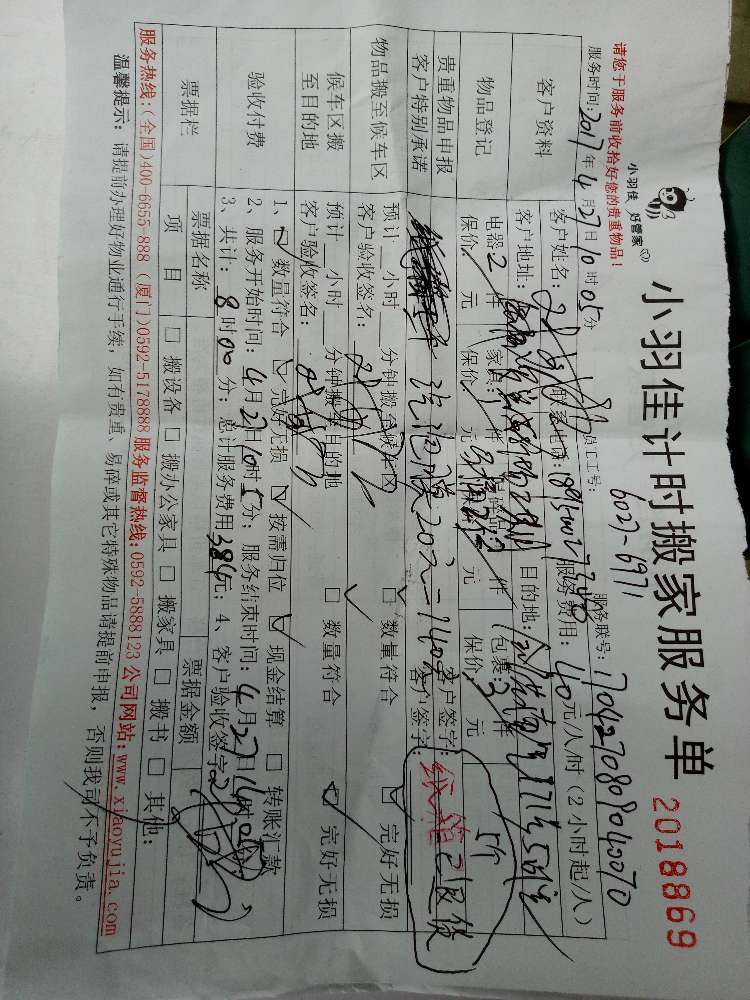 小羽佳 好管家
小羽佳计时搬家服务单 2018869
请您于服务前收拾好您的贵重物品！
员工工号：6027-6971 服务联号：1704270809040070
服务时间：2017年4月27日10时05分
客户资料
客户姓名： 联系电话： 服务费用：40元/人/时（2小时起/人）
客户地址： 目的地：
物品登记
电器2件 家具 件 件 （包裹：3件
保价 元 保价 元 元 保价 元
贵重物品申报
客户特别承诺
汽泡膜20元=140元 客户签字：
客户签字：
5个
纸箱已退货
物品搬至候车区
预计 小时 分钟搬至候车区 □ 数量符合 ☑ 完好无损
客户验收签名：
候车区搬
至目的地
预计 小时 分钟搬至目的地 □ 数量符合 ☑ 完好无损
客户验收签名：
验收付费
1、☑ 数量符合 ☑ 完好无损 ☑ 按需归位 ☑ 现金结算 □ 转账汇款
2、服务开始时间：4月27日10时 分；服务结束时间：4月27日
3、共计：8时00分；总计服务费用384元；4、客户验收签字
票据栏
票据名称 票据金额
项目 □ 搬设备 □ 搬办公家具 □ 搬家具 □ 搬书 □ 其他：
服务热线：(全国)400-6655-888 (厦门)0592-5178888 服务监督热线：0592-5888123 公司网站：www.xiaoyujia.com
温馨提示：请提前办理好物业通行手续，如有贵重、易碎或其它特殊物品请提前申报，否则我司不予负责。